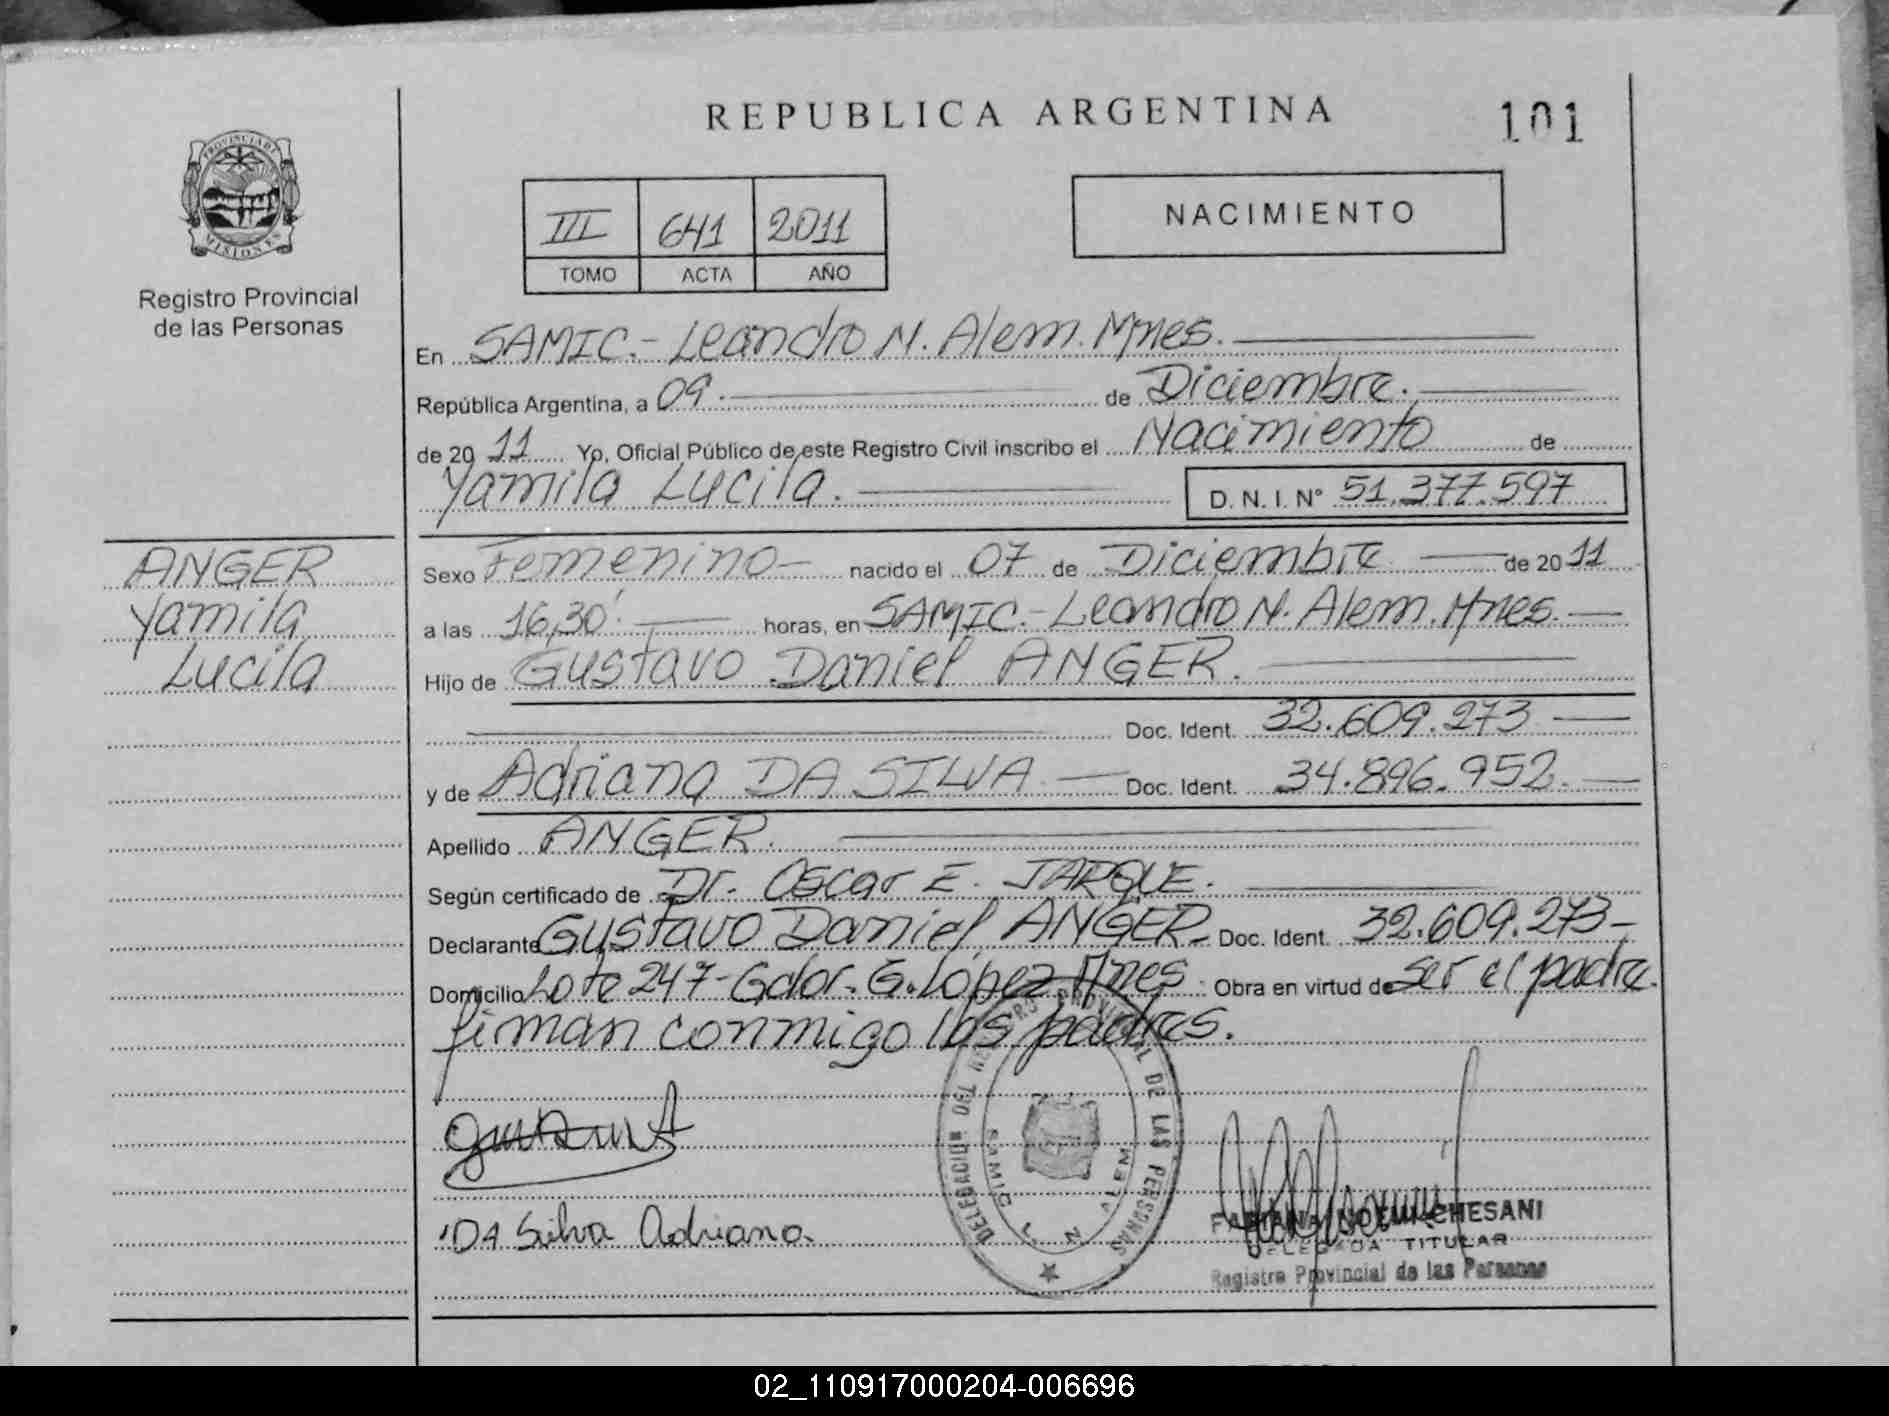 REPUBLICA ARGENTINA
101
PROVINCIA DE
MISIONES
Registro Provincial
de las Personas
III 641 2011
TOMO ACTA AÑO
NACIMIENTO
En SAMIC.- Leandro N. Alem. Mnes.
República Argentina, a 09. de Diciembre.
de 20 11 Yo, Oficial Público de este Registro Civil inscribo el Nacimiento de
Yamila Lucila. D. N. I. N° 51.377.597
ANGER
Yamila
Lucila
Sexo Femenino nacido el 07 de Diciembre de 20 11
a las 16,30' horas, en SAMIC.- Leandro N. Alem. Mnes.
Hijo de Gustavo Daniel ANGER.
Doc. Ident. 32.609.273
y de Adriana DA SILVA Doc. Ident. 34.896.952.
Apellido ANGER.
Según certificado de Dr. Oscar E. JARQUE.
Declarante Gustavo Daniel ANGER Doc. Ident. 32.609.273
Domicilio Lote 247- Gdor. G. López Mnes Obra en virtud de ser el padre.
firman conmigo los padres.
DELEGACION DEL REGISTRO PROVINCIAL DE LAS PERSONAS
SAMIC L N ALEM
DA Silva Adriana
CHESANI
DELEGADA TITULAR
Registro Provincial de las Personas
02_110917000204-006696